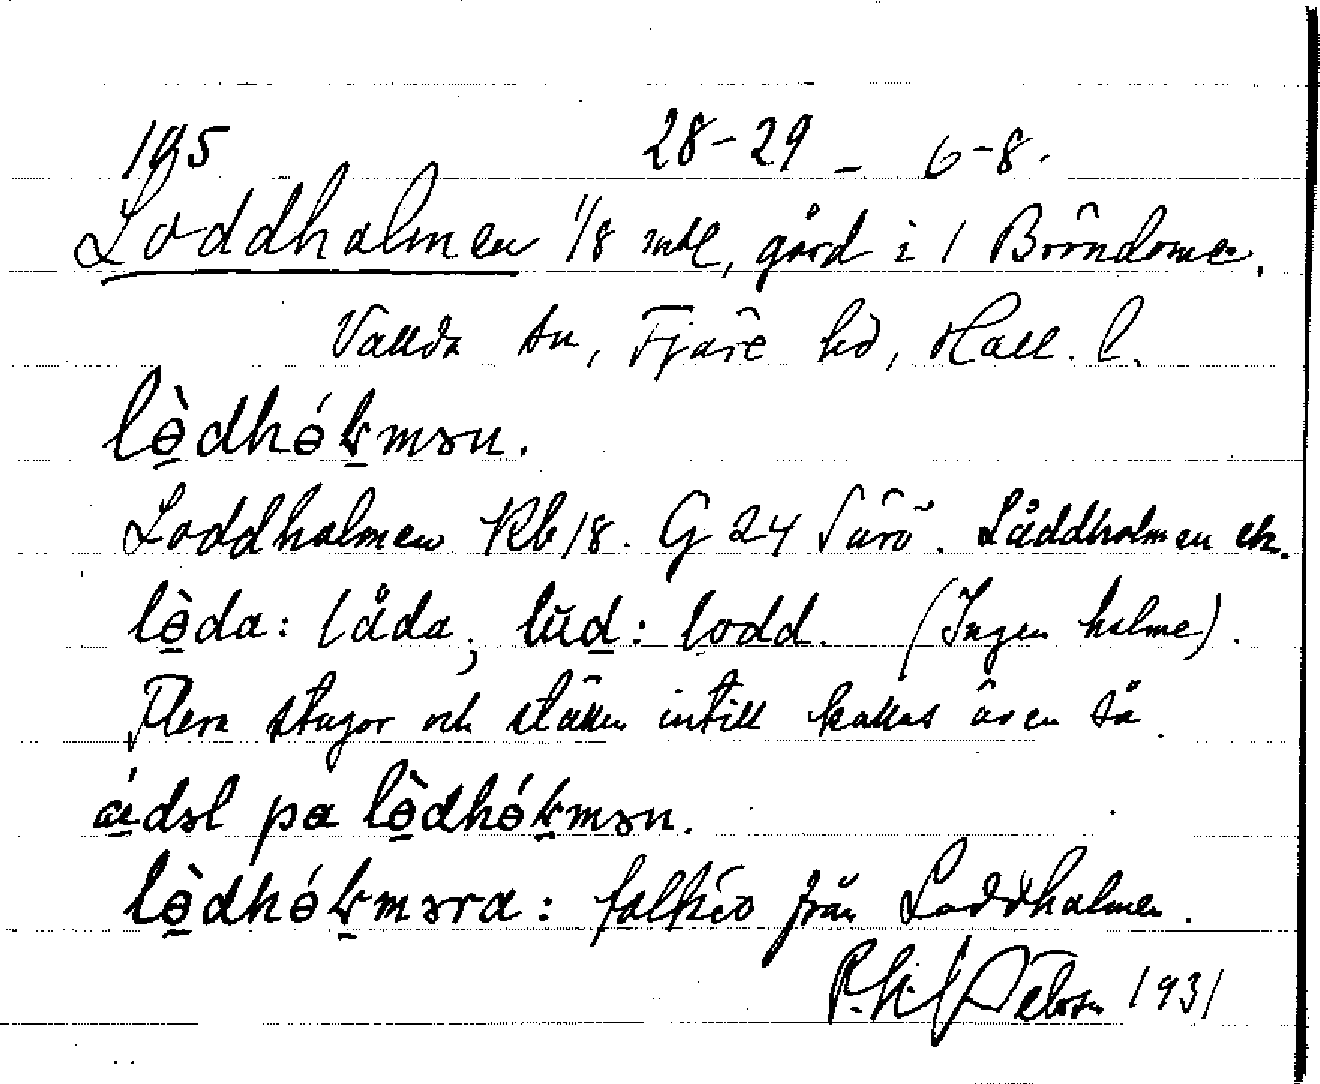 195 28-29 - 6-8.
Loddholmen 1/8 mtl, gård i 1 Bröndome.
Vallda sn, Fjäre hd, Hall. l.
lɵ̀dhɵ́ɭmən.
Loddholmen Rb 18. G 24 Särö. Låddholmen ek.
lɵ̀da: låda; lŭd: lodd. (Ingen holme).
Flera stugor och ställen intill kallas även så.
pa lɵ̀dhɵ́ɭmən.
lɵ̀dhɵ́ɭməra: från Loddholmen.
1931